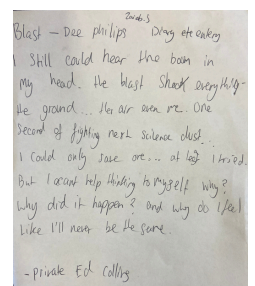 Blast - Dee philips Diary
I Still could hear the boom in
my head. the blast Shook everything-
the ground... the air even me. One
Second of fighting next scilence dust...
I could only save one... at least I tried.
But I cant help thinking to myself why?
Why did it happen? and why do I feel
Like I'll never be the same.
-private Ed Collins